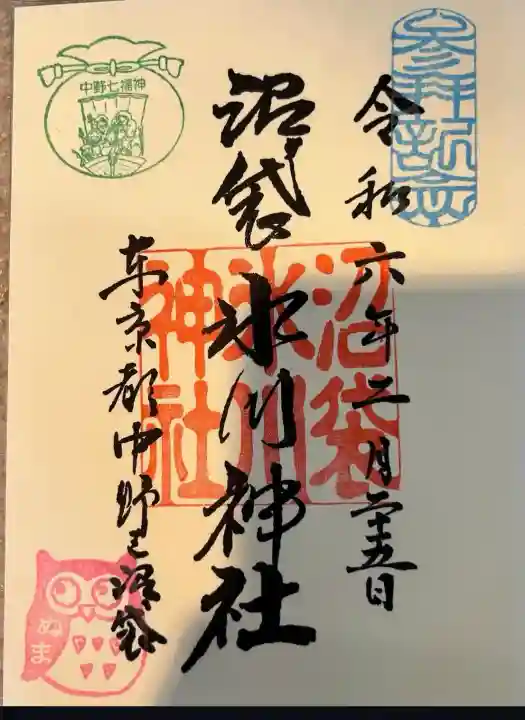 参拝記念
令和六年二月二十五日
沼袋氷川神社
沼袋
氷川
神社
東京都中野区沼袋
中野七福神
ぬま